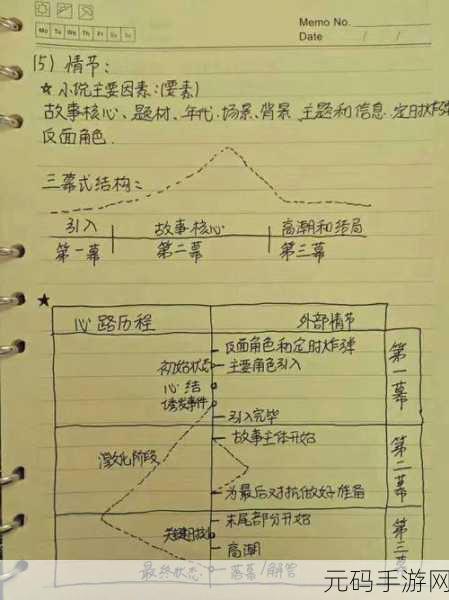 Memo No.
Date / /
Mo Tu We Th Fr Sa Su
(5) 情节:
★ 小说主要因素:(要素)
故事核心、题材、年代、场景、背景、主题和信息、定时炸弹
反面角色.
三幕式结构:
引入 故事核心 高潮和结局
第一幕 第二幕 第三幕
★
心路历程 外部情节
反面角色和定时炸弹
初始状态 主要角色引入
心结
诱发事件
引入完毕
第一幕
故事主体开始
激化阶段
为最后对抗做好准备
第二幕
末尾部分开始
关键时刻
高潮
最终状态 落幕/解答
第三幕
元码手游网